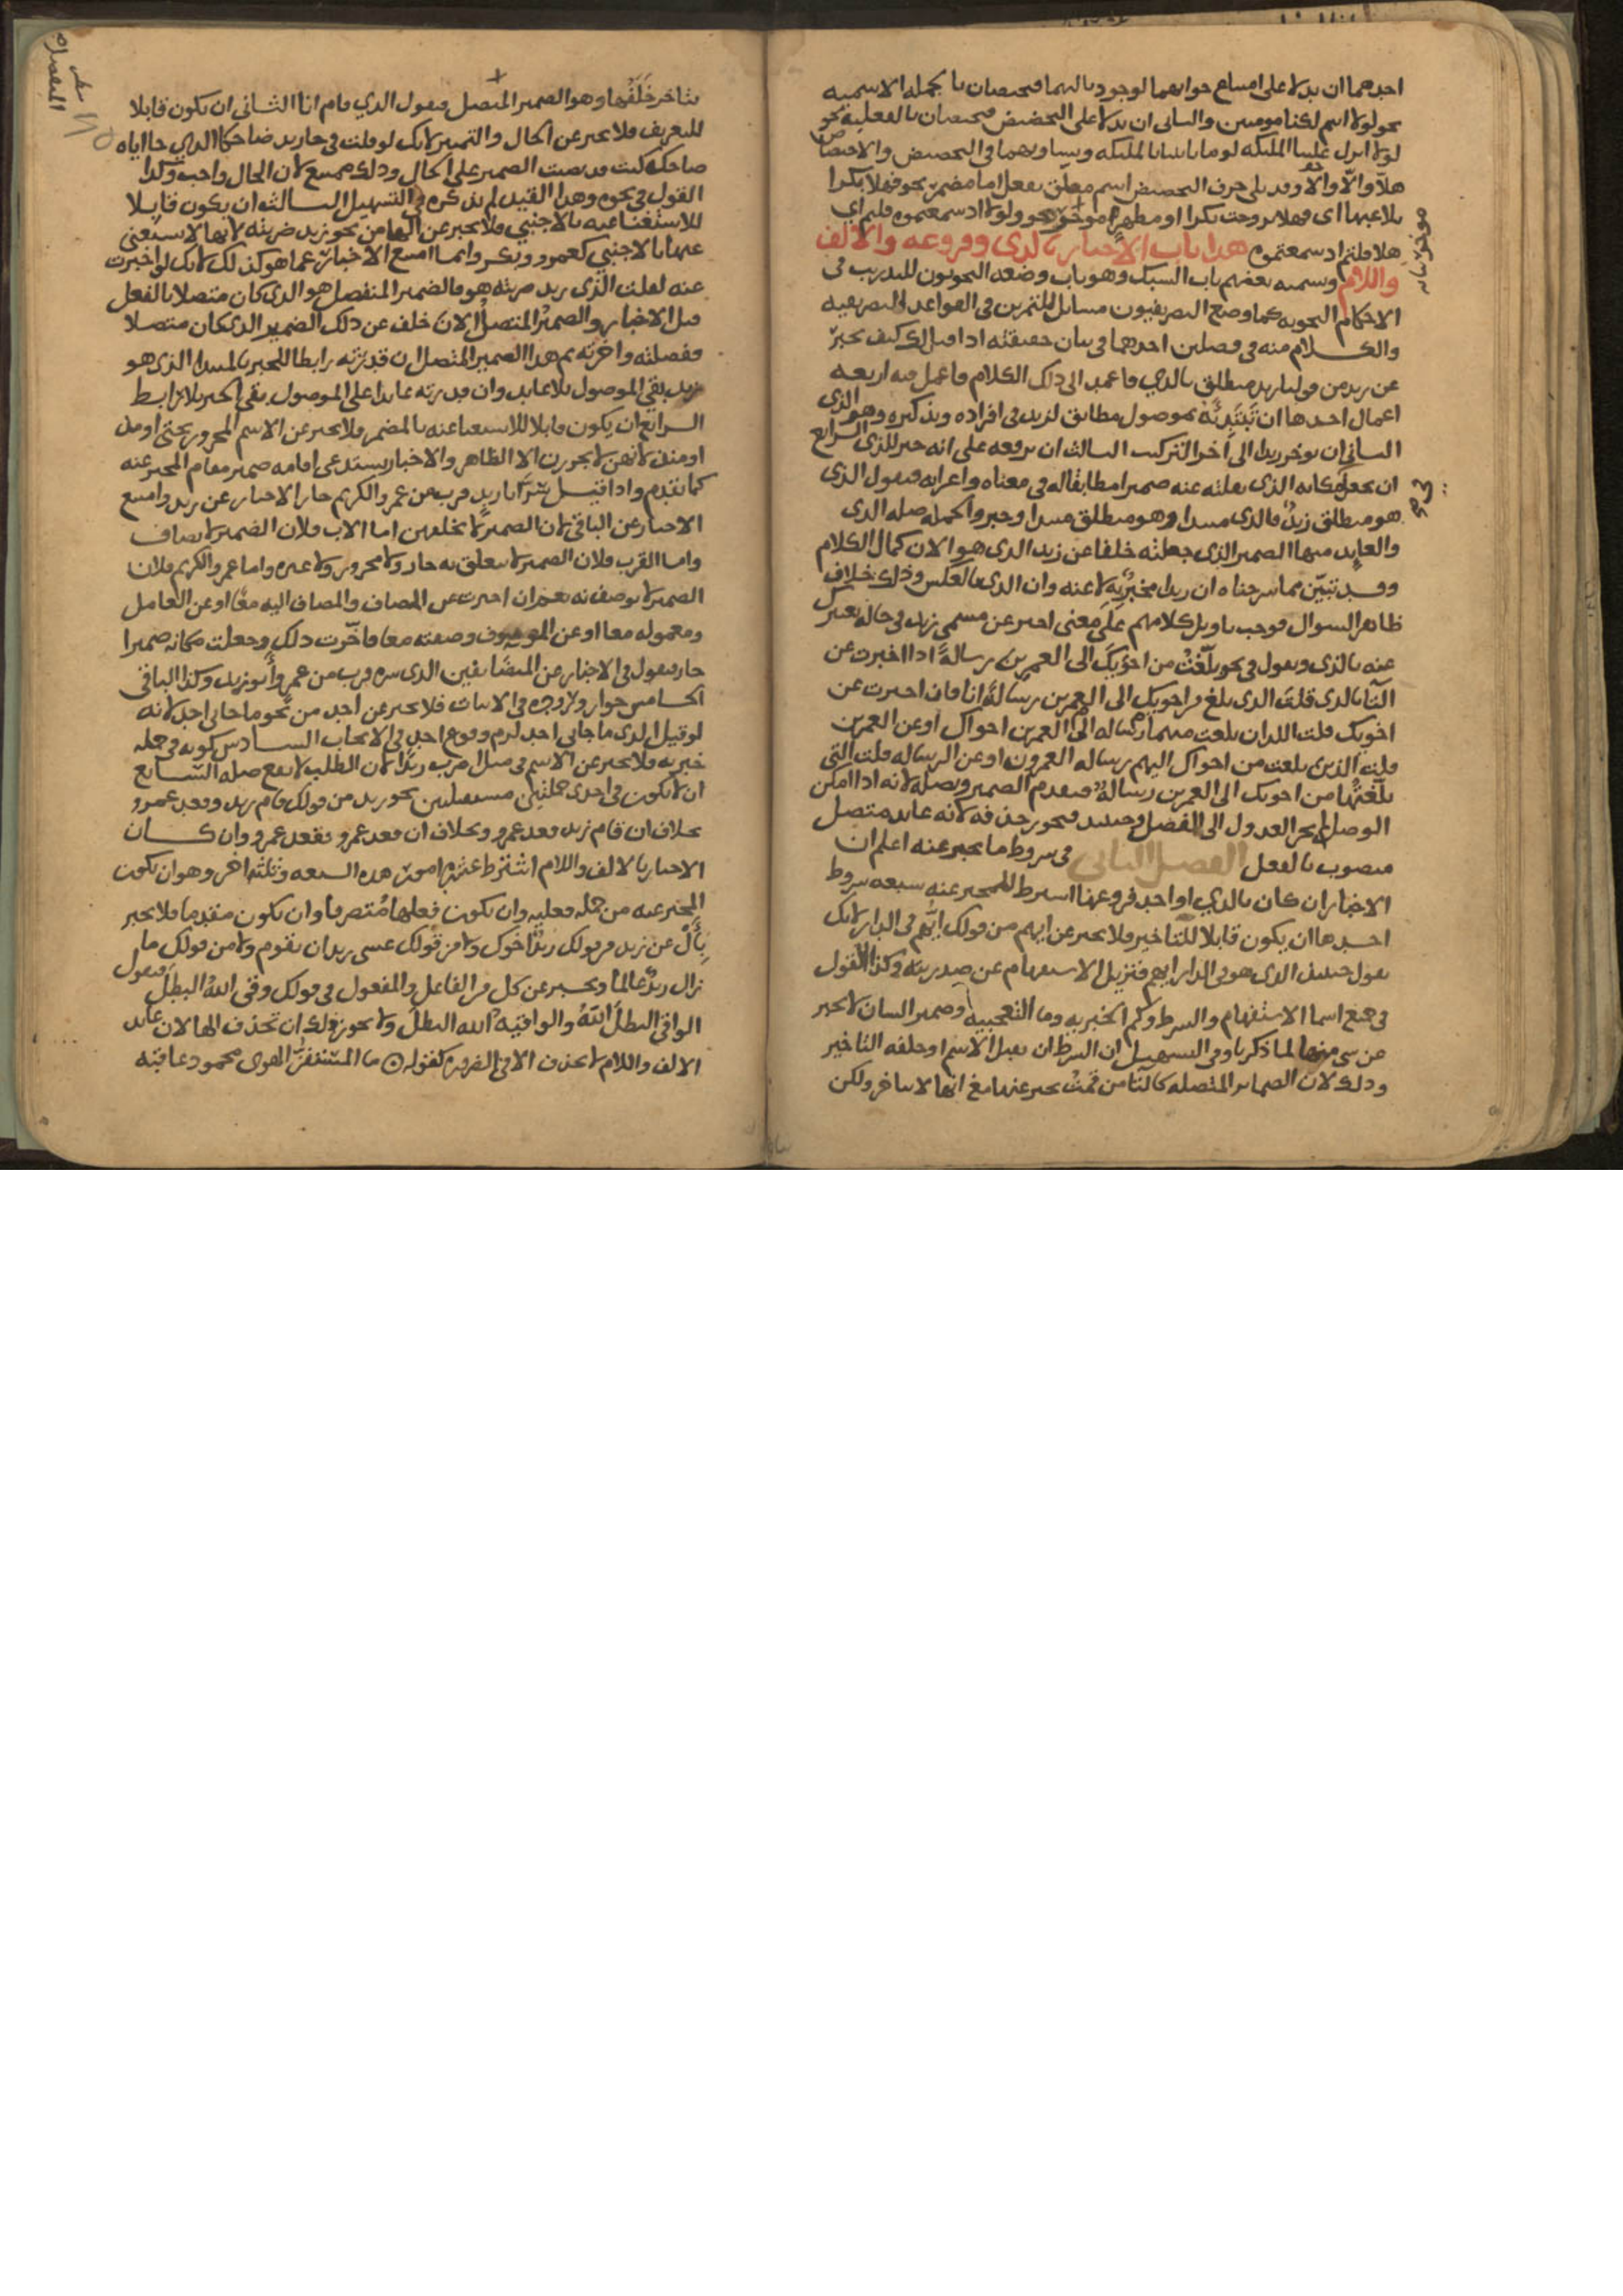 احدهما ان يدلا على امتناع جوابهما لوجود تاليهما فيختصان بالجمله الاسميه
نحو لولا انتم لكنا مومنين والثاني ان يدلا على التحضيض فيختصان بالفعليه نحو
لولا انزل علينا الملىكه لوما تاتينا بالملىكه ويساويهما في التحضيض والاختصاص
هلّا والّا والَا وقد يلى حرف التحضيض اسم معلق بفعل اما مضمر نحو فهلا بكرا
تلاعبها اى فهلا تزوجت بكرا او مظهر موخر نحو ولولا اذ سمعتموه قلتم اي
هلا قلتم اذ سمعتموه هذا باب الاخبار بالذى وفروعه والالف
واللام ويسميه بعضهم باب السبك وهو باب وضعه النحويون للتدريب في
الاحكام النحويه كما وضع التصريفيون مسايل للتمرين في القواعد التصريفيه
والكلام منه في فصلين احدهما في بيان حقيقته اذا قيل لك كيف تخبر
عن زيد من قولنا زيد منطلق بالذي فاعمد الى ذلك الكلام فاعمل فيه اربعه
اعمال احدها ان تبتديه بموصول مطابق لزيد في افراده وتذكيره وهو الذى
الثاني ان توخر زيدا الى اخر التركيب الثالث ان ترفعه على انه خبر للذى الرابع
ان تجعل مكانه الذى نقلته عنه ضميرا مطابقا له في معناه واعرابه فتقول الذى
هو منطلق زيدٌ فالذى مبتدا وهو منطلق مبتدا وخبر والجمله صله الذى
والعايد منها الضمير الذى جعلته خلفا عن زيد الذى هو الان كمال الكلام
وقد تبيّن مما شرحناه ان زيدا مخبرٌ به لا عنه وان الذى بالعكس وذلك خلاف
ظاهر السوال فوجب تاويل كلامهم على معنى اخبر عن مسمى زيد في حال تعبيرك
عنه بالذى وتقول في نحو بلّغتُ من اخوَيك الى العمرين رسالةً اذا اخبرت عن
التا بالذى قلت الذى بلغ من اخويك الى العمرين رسالةً انا فان اخبرت عن
اخويك قلت اللذان بلغت منهما رساله الى العمرين اخواك او عن العمرين
قلت الذين بلغت من اخويك اليهم رساله العمرون او عن الرساله قلت التي
بلّغتُها من اخويك الى العمرين رسالةٌ فتقدم الضمير وتصله لانه اذا امكن
الوصل لم يجز العدول الى الفصل وحينيذ فيجوز حذفه لانه عايد متصل
منصوب بالفعل الفصل الثاني في شروط ما يخبر عنه اعلم ان
الاخبار ان كان بالذي او احد فروعها اشترط للمخبر عنه سبعه شروط
احدها ان يكون قابلا للتاخير فلا يخبر عن ايهم من قولك ايُّهم في الدار لانك
تقول حينيذ الذى هو في الدار ايهم فتزيل الاستفهام عن صدريته وكذا القول
في جميع اسما الاستفهام والشرط وكم الخبريه وما التعجبيه وضمير الشان لا يخبر
عن شى منها لما ذكرنا وفي التسهيل ان الشرط ان يقبل الاسم او خلفه التاخير
وذلك لان الضماير المتصله كالتا من قمتُ يخبر عنها مع انها لا تتاخر ولكن
يتاخر خَلَفُها وهو الضمير المنفصل فتقول الذي قام انا الثاني ان يكون قابلا
للتعريف فلا يخبر عن الحال والتمييز لانك لو قلت في جا زيد ضاحكا الذي جا اياه
ضاحك كنت قد نصبت الضمير على الحال وذلك ممتنع لان الحال واجب وكذا
القول في نحوه وهذا القيد لم يذكره في التسهيل الثالث ان يكون قابلا
للاستغنا عنه بالاجنبي فلا يخبر عن الها من نحو زيد ضربته لانها لا يستغنى
عنها بالاجنبي كعمرو وبكر وانما امتنع الاخبار عما هو كذلك لانك لو اخبرت
عنه لقلت الذى زيد ضربته هو فالضمير المنفصل هو الذى كان متصلا بالفعل
قبل الاخبار والضميرُ المتصلُ الان خلف عن ذلك الضمير الذى كان متصلا
ففصلته واخرته ثم هذا الضمير المتصل ان قدرته رابطا للخبر بالمبتدا الذى هو
زيد بقي الموصول بلا عايد وان قدرته عايدا على الموصول بقى الخبر بلا رابط
الرابع ان يكون قابلا للاستغنا عنه بالمضمر فلا يخبر عن الاسم المجرور بحتى او مذ
او منذ لانهن لا يجررن الا الظاهر والاخبار يستدعى اقامه ضمير مقام المخبر عنه
كما تقدم واذا قيل سَرَّ ابا زيد قرب من عمرو الكريم جاز الاخبار عن زيد وامتنع
الاخبار عن الباقي لان الضمير لا يخلفهن اما الاب فلان الضمير لا يضاف
واما القرب فلان الضمير لا يتعلق به جار ولا مجرور ولا غيره واما عمرو الكريم فلان
الضمير لا يوصف نعم ان اخبرت عن المضاف والمضاف اليه معًا او عن العامل
ومعموله معا او عن الموصوف وصفته معا فاخّرت ذلك وجعلت مكانه ضميرا
جاز فتقول في الاخبار عن المتضايفين الذى سره قرب من عمرو ابو زيد وكذا الباقي
الخامس جواز وروده في الاثبات فلا يخبر عن احد من نحو ما جاني احد لانه
لو قيل الذى ما جاني احد لزم وقوع احد في الايجاب السادس كونه في جمله
خبريه فلا يخبر عن الاسم في مثل اضرب زيدًا لان الطلب لا يقع صله السابع
ان لا يكون في احدى جملتين مستقلتين نحو زيد من قولك قام زيد وقعد عمرو
بخلاف ان قام زيد قعد عمرو وبخلاف ان قعد عمرو وان كان
الاخبار بالالف واللام اشترط عشره امور هذه السبعه وثلثه اخر وهو ان يكون
المخبر عنه من جمله فعليه وان يكون فعلها مُتصرفا وان يكون متقدما فلا يخبر
بِأَلْ عن زيد من قولك زيدٌ اخوك ولا من قولك عسى زيد ان يقوم ولا من قولك ما
زال زيدٌ عالمًا ويخبر عن كل من الفاعل والمفعول في قولك وقى اللهُ البطلَ فتقول
الواقي البطلَ اللهُ والواقيه اللهُ البطلُ ولا يجوز لك ان تحذف الها لان عايد
الالف واللام لا يحذف الا في الضروره كقوله ما المستفزُّ الهوى محمود عاقبة